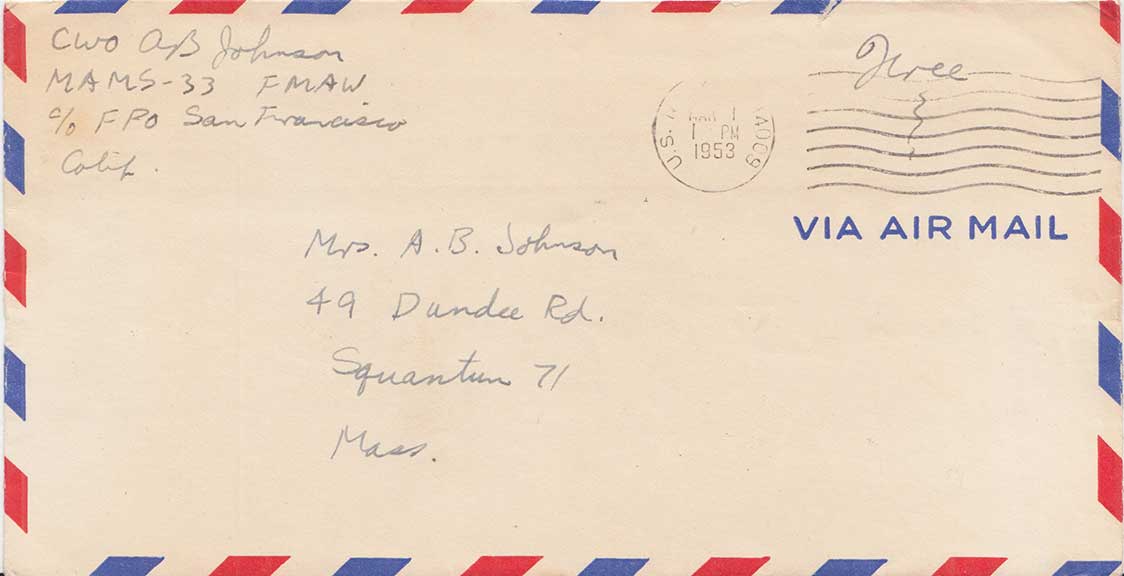 CWO AB Johnson
MAMS-33 FMAW
c/o FPO San Francisco
Calif.
Free
U.S.
1 PM
1953
VIA AIR MAIL
Mrs. A. B. Johnson
49 Dundee Rd.
Squantum 71
Mass.